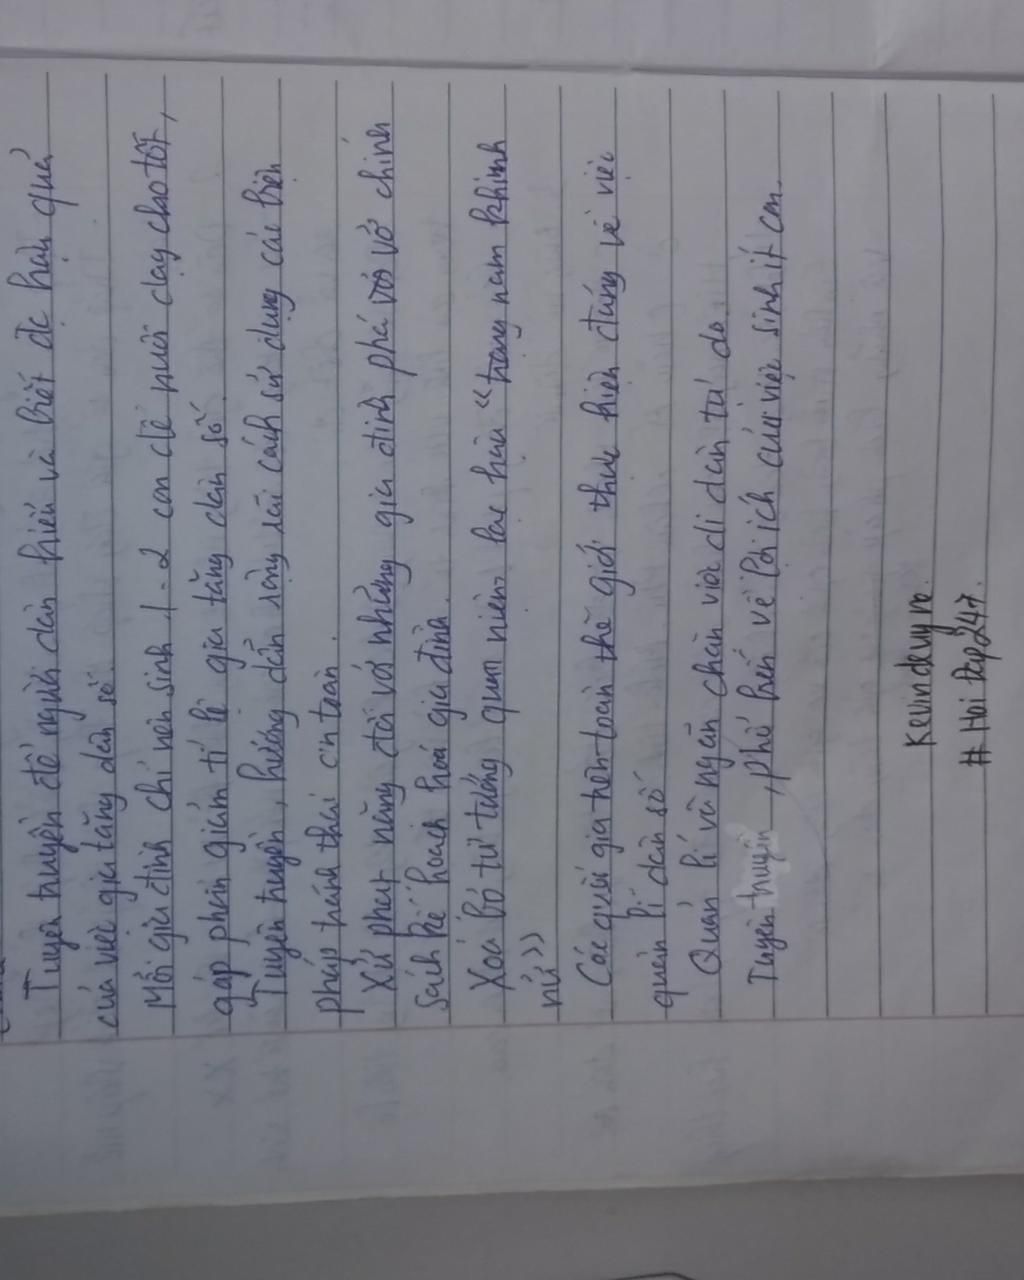 Tuyên truyền để người dân hiểu và biết đc hậu quả
của việc gia tăng dân số.
Mỗi gia đình chỉ nên sinh 1-2 con để nuôi dạy cho tốt,
góp phần giảm tỉ lệ gia tăng dân số.
Tuyên truyền, hướng dẫn rộng rãi cách sử dụng các biện
pháp tránh thai an toàn.
Xử phạt nặng đối với những gia đình phá vỡ chính
sách kế hoạch hoá gia đình.
Xoá bỏ tư tưởng quan niệm lạc hậu "trọng nam khinh
nữ"
Các quốc gia trên toàn thế giới thực hiện đúng về việc
quản lí dân số
Quản lí và ngăn chặn việc di dân tự do
Tuyên truyền, phổ biến về lợi ích của việc sinh ít con.
Kevindeuyno.
# Hoi dap247.